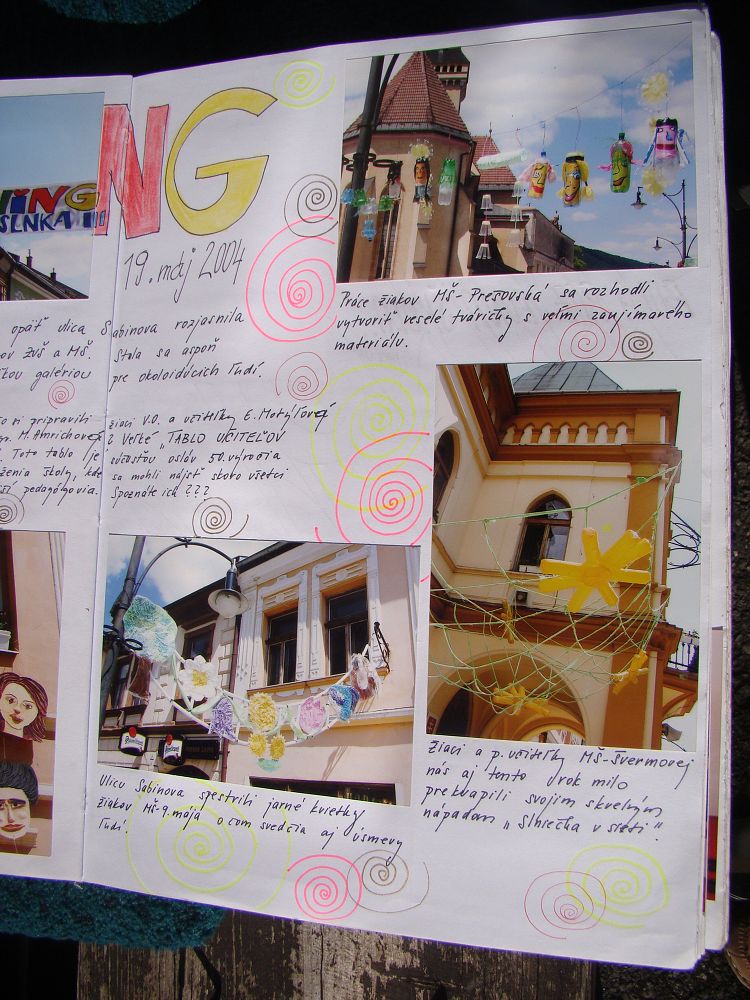 NING
SLNKA
NG
19. máj 2004
opäť ulica Sabinova rozjasnila
ZUŠ a MŠ. Stala sa aspoň
galériou pre okoloidúcich ľudí.
pripravili žiaci V.O. a učiteľky E. Motýľovej
M. Amrichovej z Veľké "TABLO UČITEĽOV
Toto tablo je súčasťou osláv 50. výročia
školy, kde sa mohli nájsť skoro všetci
pedagógovia. Spoznáte ich ???
Práce žiakov MŠ-Prešovská sa rozhodli
vytvoriť veselé tváričky s veľmi zaujímavého
materiálu.
Ulicu Sabinova spestrili jarné kvietky
žiakov MŠ-9.mája o čom svedčia aj úsmevy
ľudí.
Žiaci a p. učiteľky MŠ-Švermovej
nás aj tento rok milo
prekvapili svojim skvelým
nápadom "Slniečka v sieti".